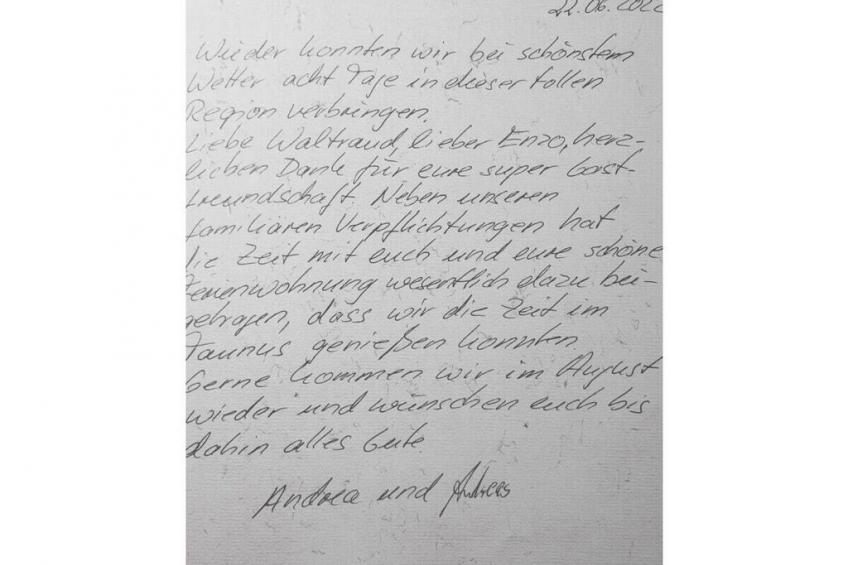 22.06.202
Wieder konnten wir bei schönstem
Wetter acht Tage in dieser tollen
Region verbringen.
Liebe Waltraud, lieber Enzo, herz-
lichen Dank für eure super Gast-
freundschaft. Neben unseren
familiären Verpflichtungen hat
die Zeit mit euch und eure schöne
Ferienwohnung wesentlich dazu bei-
getragen, dass wir die Zeit im
Taunus genießen konnten.
Gerne kommen wir im August
wieder und wünschen euch bis
dahin alles Gute.
Andrea und Andreas